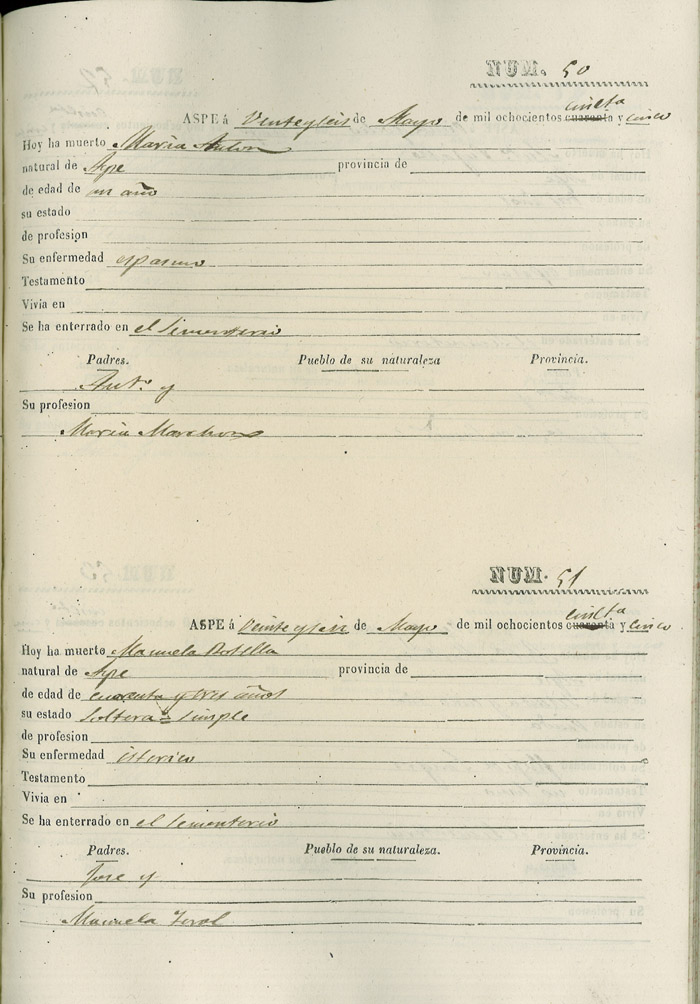 NUM. 50
ASPE á Venteyseis de Mayo de mil ochocientos cuarenta cincta y cinco
Hoy ha muerto Maria Anton
natural de Aspe provincia de
de edad de un año
su estado
de profesion
Su enfermedad espasmo
Testamento
Vivia en
Se ha enterrado en el Sementerio
Padres. Pueblo de su naturaleza Provincia.
Anto. y
Su profesion
Maria
NUM. 51
ASPE á Veinteyseis de Mayo de mil ochocientos cuarenta cincta y cinco
Hoy ha muerto Manuela Botella
natural de Aspe provincia de
de edad de cuarenta y tres años
su estado Soltera = Simple
de profesion
Su enfermedad isterico
Testamento
Vivia en
Se ha enterrado en el Sementerio
Padres. Pueblo de su naturaleza. Provincia.
Jose y
Su profesion
Manuela